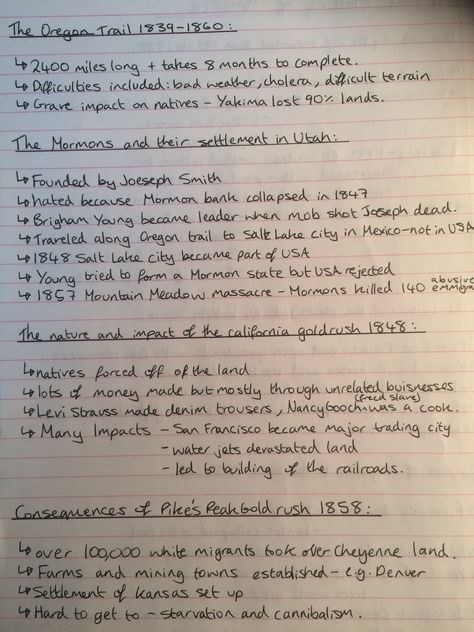 The Oregon Trail 1839-1860:
↳ 2400 miles long + takes 8 months to complete.
↳ Difficulties included: bad weather, cholera, difficult terrain
↳ Grave impact on natives - Yakima lost 90% lands.
The Mormons and their settlement in Utah:
↳ Founded by Joeseph Smith
↳ hated because Mormon bank collapsed in 1847
↳ Brigham Young became leader when mob shot Joseph dead.
↳ Traveled along Oregon trail to Salt Lake city in Mexico - not in USA
↳ 1848 Salt Lake city became part of USA
↳ Young tried to form a Mormon state but USA rejected
↳ 1857 Mountain Meadow massacre - Mormons killed 140 abusive
The nature and impact of the california goldrush 1848:
↳ natives forced off of the land
↳ lots of money made but mostly through unrelated buisnesses
↳ Levi Strauss made denim trousers, Nancy Gooch (freed slave) was a cook.
↳ Many Impacts - San Francisco became major trading city
- water jets devastated land
- led to building of the railroads.
Consequences of Pike's Peak Gold rush 1858:
↳ over 100,000 white migrants took over Cheyenne land.
↳ Farms and mining towns established - e.g. Denver
↳ Settlement of Kansas set up
↳ Hard to get to - starvation and cannibalism.